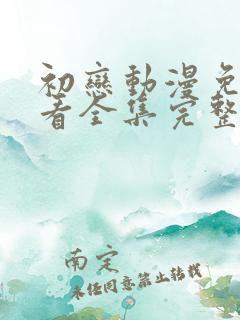 初戀動漫免
看全集完整
南定
未经同意禁止转载